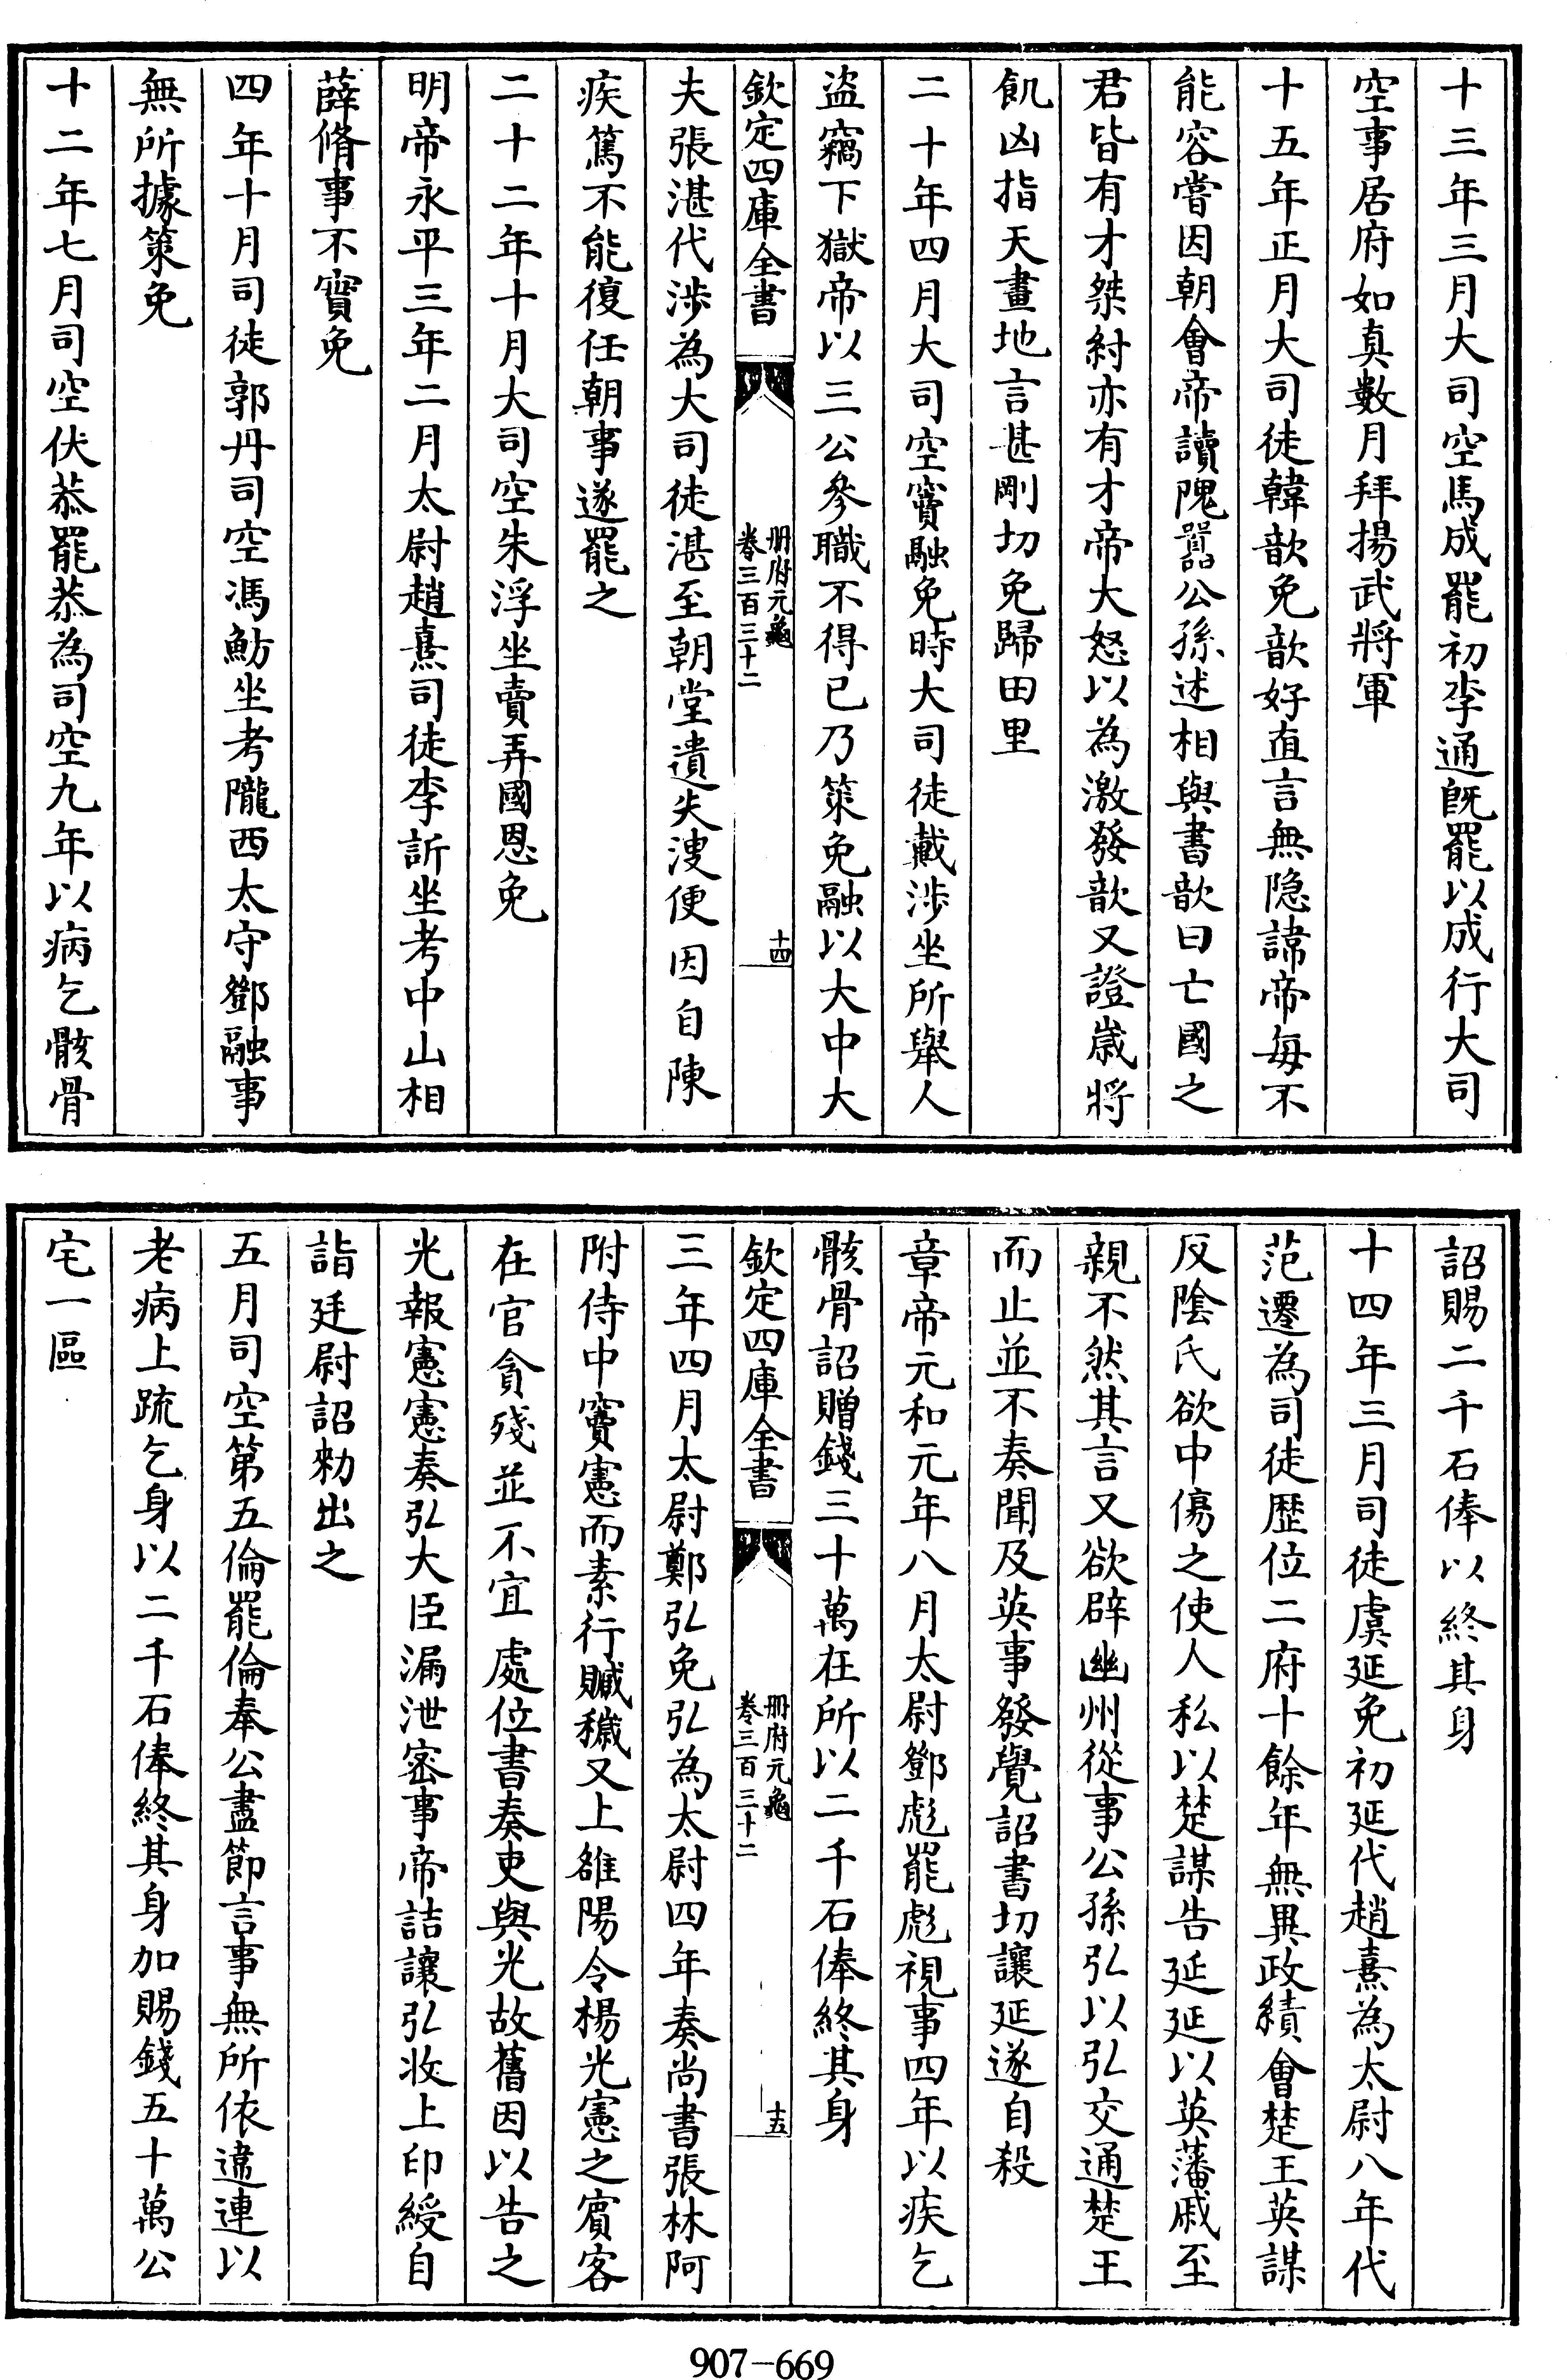 十三年三月大司空馬成罷初李通既罷以成行大司
空事居府如真數月拜揚武將軍
十五年正月大司徒韓歆免歆好直言無隱諱帝每不
能容嘗因朝會帝讀隗囂公孫述相與書歆曰亡國之
君皆有才桀紂亦有才帝大怒以為激發歆又證歲將
飢凶指天畫地言甚剛切免歸田里
二十年四月大司空竇融免時大司徒戴涉坐所舉人
盜竊下獄帝以三公參職不得已乃策免融以大中大
欽定四庫全書
冊府元龜
卷三百三十二
十四
夫張湛代涉為大司徒湛至朝堂遺失溲便因自陳
疾篤不能復任朝事遂罷之
二十二年十月大司空朱浮坐賣弄國恩免
明帝永平三年二月太尉趙熹司徒李訢坐考中山相
薛脩事不實免
四年十月司徒郭丹司空馮魴坐考隴西太守鄧融事
無所據策免
十二年七月司空伏恭罷恭為司空九年以病乞骸骨
詔賜二千石俸以終其身
十四年三月司徒虞延免初延代趙熹為太尉八年代
范遷為司徒歷位二府十餘年無異政績會楚王英謀
反陰氏欲中傷之使人私以楚謀告延延以英藩戚至
親不然其言又欲辟幽州從事公孫弘以弘交通楚王
而止並不奏聞及英事發覺詔書切讓延遂自殺
章帝元和元年八月太尉鄧彪罷彪視事四年以疾乞
骸骨詔贈錢三十萬在所以二千石俸終其身
欽定四庫全書
冊府元龜
卷三百三十二
十五
三年四月太尉鄭弘免弘為太尉四年奏尚書張林阿
附侍中竇憲而素行贓穢又上雒陽令楊光憲之賓客
在官貪殘並不宜處位書奏吏與光故舊因以告之
光報憲憲奏弘大臣漏泄密事帝詰讓弘收上印綬自
詣廷尉詔勑出之
五月司空第五倫罷倫奉公盡節言事無所依違連以
老病上疏乞身以二千石俸終其身加賜錢五十萬公
宅一區
907-669